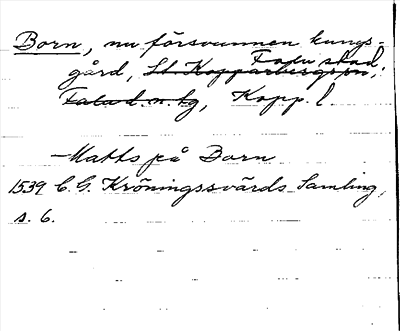 Born, nu försvunnen kungs-
gård, St. Kopparbergs sn, Falu stad;
Falu d. n. hg, Kopp. l.
Matts på Born
1539 C. G. Kröningssvärds Samling,
s. 6.